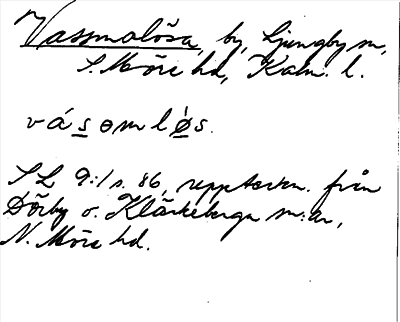 Vassmolösa, by, Ljungby sn,
S. Möre hd, Kalm. l.
vásəmlø̀s.
SL 9:1 s. 86, uppteckn. från
Dörby o. Kläckeberga sn:ar,
N. Möre hd.